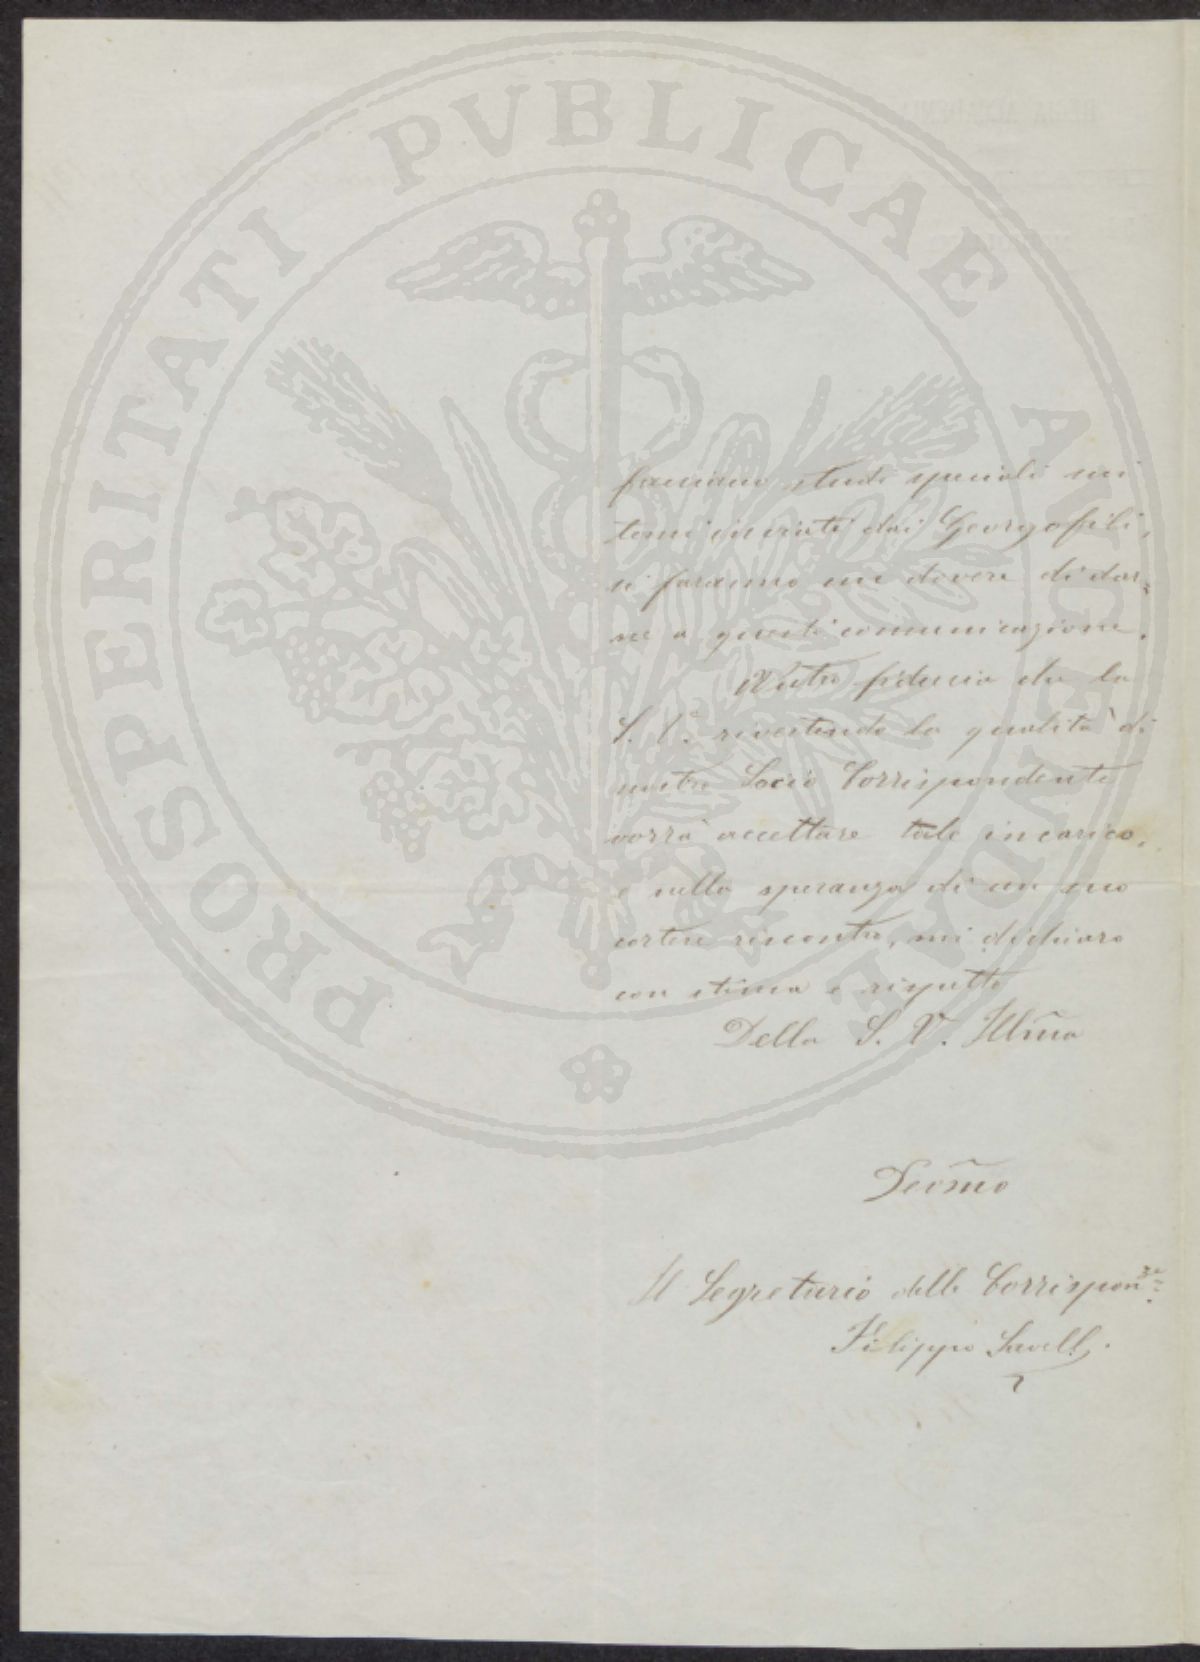 PROSPERITATI PVBLICAE AVGENDAE
facciano studi speciali nei
temi iniziati dai Georgofili,
si faranno un dovere di dar=
ne a questi comunicazione.
Nutro fiducia che la
S. V. rivestendo la qualità di
nostro Socio Corrispondente
vorrà accettare tale incarico,
e nella speranza di un suo
cortese riscontro, mi dichiaro
con stima e rispetto
Della S. V. Illma
Devmo
Il Segretario delle Corrisponze
Filippo